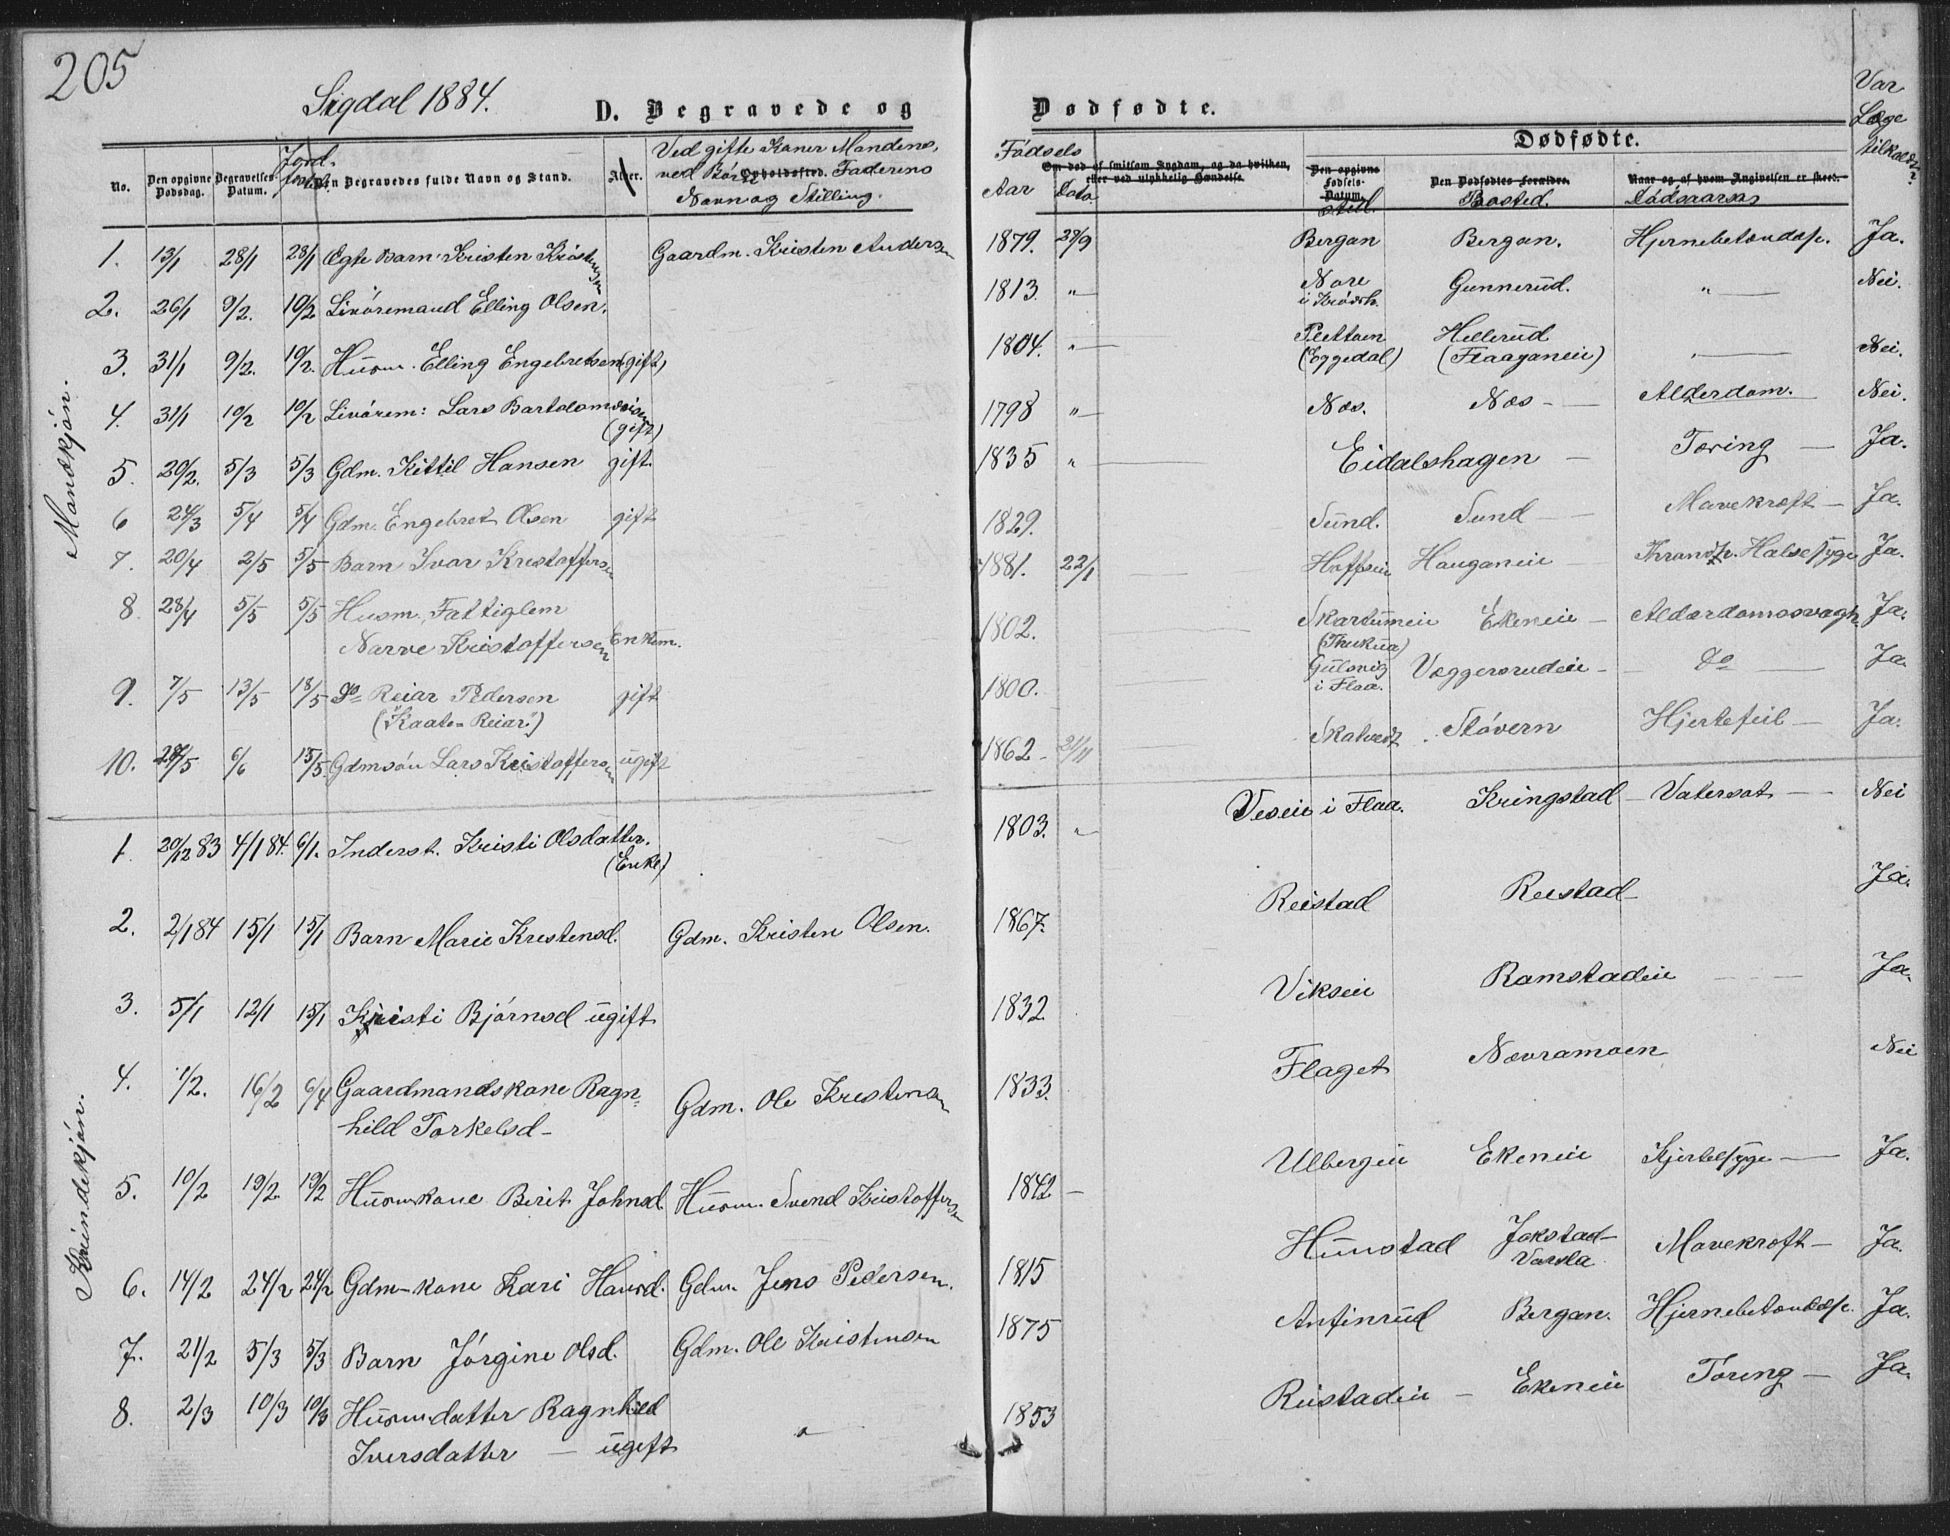 205
Sigdal 1884.
D. Begravede og
Dødfødte.
Var
Læge
tilkaldt?
No.
Den opgivne Dødsdag.
Begravelses Datum.
Jord-
Den Begravedes fulde Navn og Stand.
Alder.
Ved gifte Koner Mandens,
ved Børn Opholdssted. Faderens
Navn og Stilling.
Fødsels
Aar
Dato
Om død af smitsom Sygdom, og da hvilken,
eller ved ulykkelig Hændelse.
Dødfødte.
Den opgivne Fødsels-Datum.
sted.
Den Dødfødtes Forældre.
Bosted.
Naar og af hvem Angivelsen er skeet.
Dødsaarsag
Mandkjøn.
1. 13/1 28/1 28/1 Ægte Barn Kristen Kristensen Gaardm. Kristen Andersen 1879. 29/9 Bergan Bergan. Hjernebetændelse. Ja.
2. 26/1 9/2. 10/2 Livøremand Elling Olsen. 1813. " Nore i Krødsh. Gunnerud. " Nei.
3. 31/1 9/2. 10/2. Husm. Elling Engebretsen (gift) 1804. " Plettan (Eggedal) Hellerud (Flaaganeie) " Nei.
4. 31/1 10/2 10/2 Livørem: Lars Bartolomæisen (gift) 1798 " Næs. Næs - Alderdom. Nei.
5. 20/2. 5/3 5/3 Gdm. Kittil Hansen gift 1835 " Eidalshagen - Tæring - Ja.
6 24/3 5/4 5/4 Gdm. Engebret Olsen gift 1829. Sund. Sund - Mavekræft - Ja.
7. 20/4 2/5 5/5 Barn Ivar Kristoffersen 1881. 22/1 Hoffseie Hauganeie Halsesyge Ja.
8 28/4 5/5 5/5 Husm. Fattiglem
Narve Kristoffersen Enkem. 1802. Skartumeie Ekeneie - Alderdomssvagh. Ja.
9. 7/5 13/5 18/5 do Reiar Pedersen gift 1800. Gulsvig i Flaa. Væggersrudeie - do Ja
("Kaate-Reiar")
10. 28/5 6/6 15/5 Gdmsøn Lars Kristoffersen ugift 1862 - 21/11 Skatvedt. Støvern Hjertefeil - Ja.
Kvindekjøn.
1. 20/12 83 4/1 84. 6/1. Inderst. Kristi Olsdatter. (Enke) 1803. " Veseie i Flaa. Kringstad - Vatersot - Nei
2. 2/1 84 15/1 15/1 Barn Marie Kristensd. Gdm. Kristen Olsen. 1867. Reistad Reistad - Ja.
3. 5/1 12/1 15/1 Kristi Bjørnsd ugift 1832. Vikseie Ramstadeie Ja.
4. 1/2. 16/2 6/4 Gaardmandskone Ragn-
hild Torkelsd - Gdm. Ole Kristensen 1833. Flaget Nævramoen Nei
5. 10/2 19/2 19/2 Husmkone Berit Johnsd. Husm. Svend Kristoffersen 1842 - Ulbergeie Ekeneie Hjertesyge - Ja.
6. 14/2 24/2 24/2 Gdm-kone Kari Hansd. Gdm. Jens Pedersen. 1815 Hunstad Jokstad- Varsla Mavekræft - Ja.
7. 21/2 5/3 5/3 Barn Jørgine Olsd. Gdm. Ole Kristensen 1875 Anfinrud Bergan. Hjernebetændelse. Ja.
8. 2/3 10/3 10/3 Husmdatter Ragnhild
Iversdatter - ugift " 1853 Reistadeie - Ekeneie Tæring - Ja.